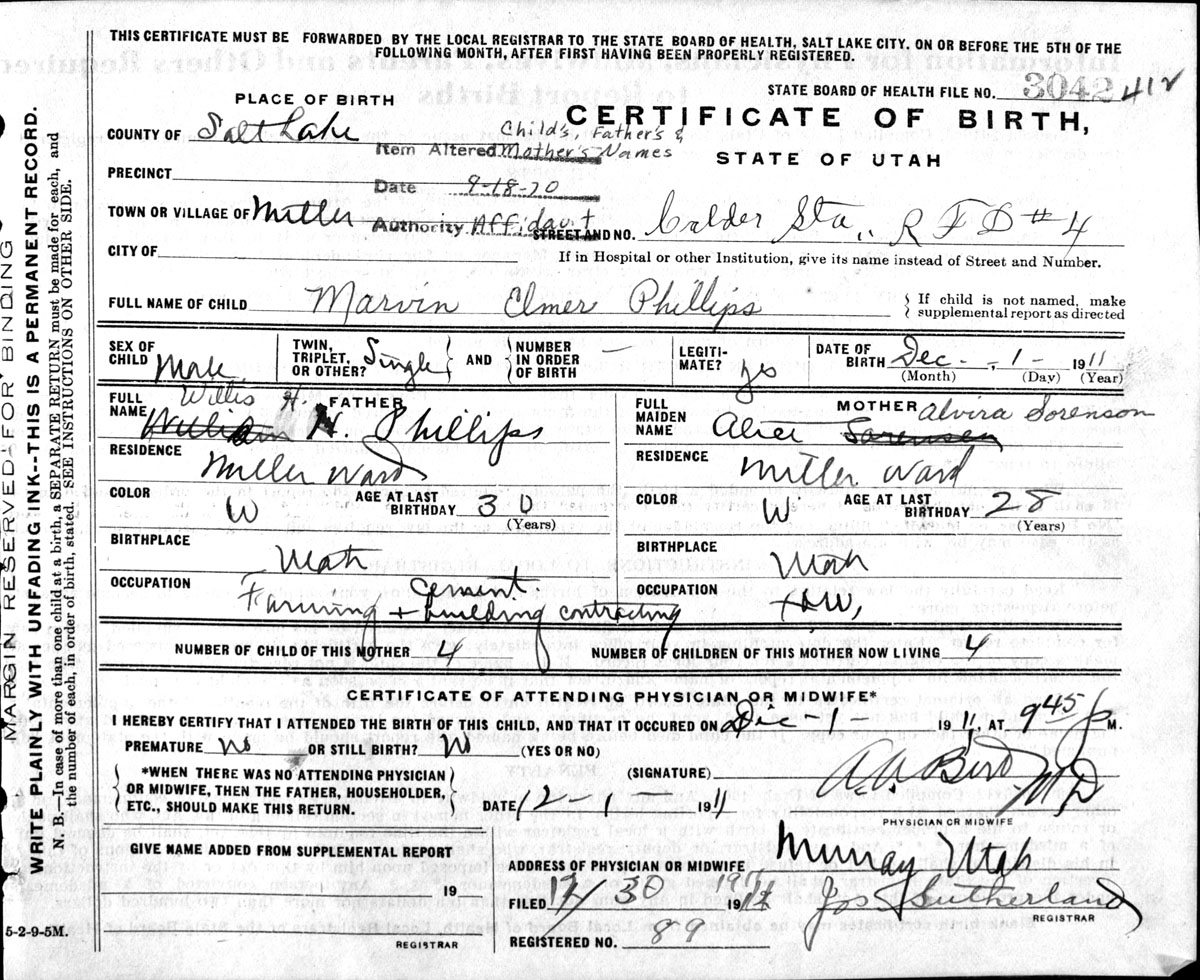 THIS CERTIFICATE MUST BE FORWARDED BY THE LOCAL REGISTRAR TO THE STATE BOARD OF HEALTH, SALT LAKE CITY, ON OR BEFORE THE 5TH OF THE
FOLLOWING MONTH, AFTER FIRST HAVING BEEN PROPERLY REGISTERED.
STATE BOARD OF HEALTH FILE NO. 3042 412
PLACE OF BIRTH
CERTIFICATE OF BIRTH,
STATE OF UTAH
COUNTY OF Salt Lake
Child's, Father's &
Item Altered Mother's Names
PRECINCT
Date 9-18-70
TOWN OR VILLAGE OF Miller Authority Affidavit STREET AND NO. Calder Sta., R F D #4
CITY OF
If in Hospital or other Institution, give its name instead of Street and Number.
FULL NAME OF CHILD Marvin Elmer Phillips { If child is not named, make
supplemental report as directed
SEX OF CHILD Male TWIN, TRIPLET, OR OTHER? Single AND NUMBER IN ORDER OF BIRTH — LEGITI-MATE? yes DATE OF BIRTH Dec - 1 - 1911
(Month) (Day) (Year)
FULL NAME FATHER Willis H.
William H. Phillips
FULL MAIDEN NAME MOTHER Alvira Sorenson
Alice Sorensen
RESIDENCE Miller Ward
RESIDENCE Miller Ward
COLOR W AGE AT LAST BIRTHDAY 30 (Years)
COLOR W AGE AT LAST BIRTHDAY 28 (Years)
BIRTHPLACE Utah
BIRTHPLACE Utah
OCCUPATION Farming + cement building contracting
OCCUPATION H.W.
NUMBER OF CHILD OF THIS MOTHER 4 NUMBER OF CHILDREN OF THIS MOTHER NOW LIVING 4
CERTIFICATE OF ATTENDING PHYSICIAN OR MIDWIFE*
I HEREBY CERTIFY THAT I ATTENDED THE BIRTH OF THIS CHILD, AND THAT IT OCCURRED ON Dec - 1 - 1911. AT 945 P M.
PREMATURE No OR STILL BIRTH? No (YES OR NO)
*WHEN THERE WAS NO ATTENDING PHYSICIAN
OR MIDWIFE, THEN THE FATHER, HOUSEHOLDER,
ETC., SHOULD MAKE THIS RETURN.
(SIGNATURE) Bird MD
DATE 12 - 1 1911
PHYSICIAN OR MIDWIFE
GIVE NAME ADDED FROM SUPPLEMENTAL REPORT
19
REGISTRAR
ADDRESS OF PHYSICIAN OR MIDWIFE Murray Utah
FILED 12/30 1911 Jos Sutherland
REGISTRAR
REGISTERED NO. 89
MARGIN RESERVED FOR BINDING
WRITE PLAINLY WITH UNFADING INK--THIS IS A PERMANENT RECORD.
N. B.—In case of more than one child at a birth, a SEPARATE RETURN must be made for each, and
the number of each, in order of birth, stated. SEE INSTRUCTIONS ON OTHER SIDE.
5-2-9-5M.